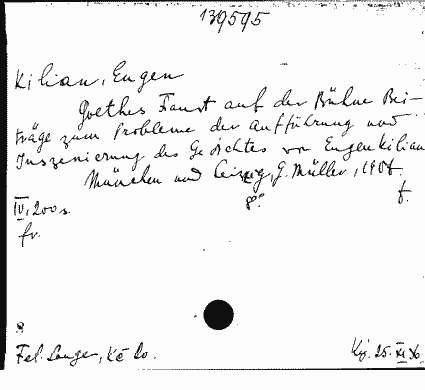 139595
Kilian, Eugen
Goethes Faust auf der Bühne Bei-
träge zum Probleme der Aufführung und
Inszenierung des Gedichtes von Eugen Kilian
München und Leipzig, G. Müller, 1907.
8°. f.
IV, 200 s.
fv.
8
Fel. Lange,
Kij. 25. XI